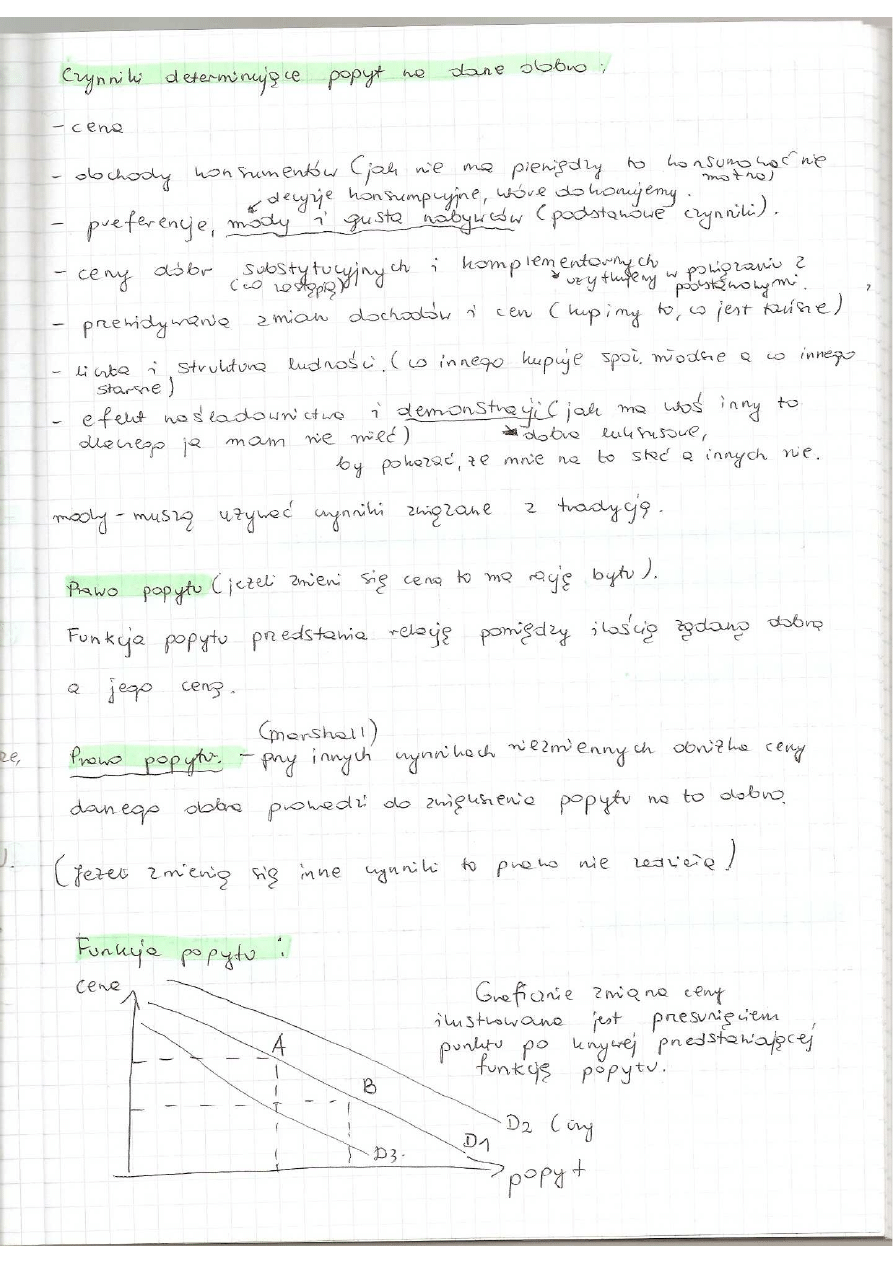 Czynniki determinujące popyt na dane dobro:
- cena
- dochody konsumentów (jak nie ma pieniędzy to konsumować nie można)
decyzje konsumpcyjne, które dokonujemy.
- preferencje, mody i gusta nabywców (podstawowe czynniki).
- ceny dóbr substytucyjnych i komplementarnych
(co zastąpią) użytkujemy w powiązaniu z podstawowymi.
- przewidywania zmian dochodów i cen (kupimy to, co jest tańsze)
- liczba i struktura ludności. (co innego kupuje społ. młodsze a co innego
starsze)
- efekt naśladownictwa i demonstracji (jak ma ktoś inny to
dlaczego ja mam nie mieć) dobra luksusowe,
by pokazać, że mnie na to stać a innych nie.
mody - muszą używać czynniki związane z tradycją.
Prawo popytu (jeżeli zmieni się cena to ma rację bytu).
Funkcja popytu przedstawia relację pomiędzy ilością żądaną dobra
a jego ceną.
(Marshall)
Prawo popytu. - przy innych czynnikach niezmiennych obniżka ceny
danego dobra prowadzi do zwiększenia popytu na to dobro.
(jeżeli zmienią się inne czynniki to prawo nie zadziała)
Funkcja popytu:
cena
Graficznie zmiana ceny
ilustrowana jest przesunięciem
punktu po krzywej przedstawiającej
funkcję popytu.
A
B
D2
D1
D3.
popyt